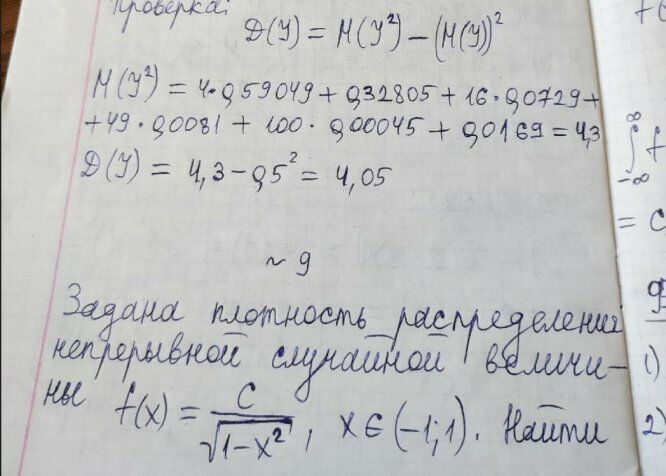 Проверка:
D(Y) = M(Y²) − (M(Y))²
M(Y²) = 4·0,59049 + 0,32805 + 16·0,0729 +
+ 49·0,0081 + 100·0,00045 + 0,0169 = 4,3
D(Y) = 4,3 − 0,5² = 4,05
~ 9
Задана плотность распределения
непрерывной случайной величи-
ны f(x) = C/√(1−x²), x ∈ (−1; 1). Найти
∞
∫ f
−∞
= C
1)
2)